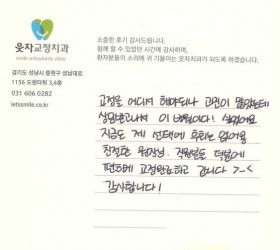 웃자교정치과
smile orthodontic clinic
경기도 성남시 중원구 성남대로
1156 도원타워 3,4층
031 606 0282
letssmile.co.kr
소중한 후기 감사드립니다.
함께 할 수 있었던 시간에 감사하며,
환자분들의 소리에 귀 기울이는 웃자치과가 되도록 하겠습니다.
교정을 어디서 해야하나 고민이 많았는데
상담받고나서 이 병원이다! 싶었어요
지금도 제 선택에 후회는 없어용
친절한 원장님, 직원분들 덕분에
편하게 교정완료하고 갑니다 >-<
감사합니다!